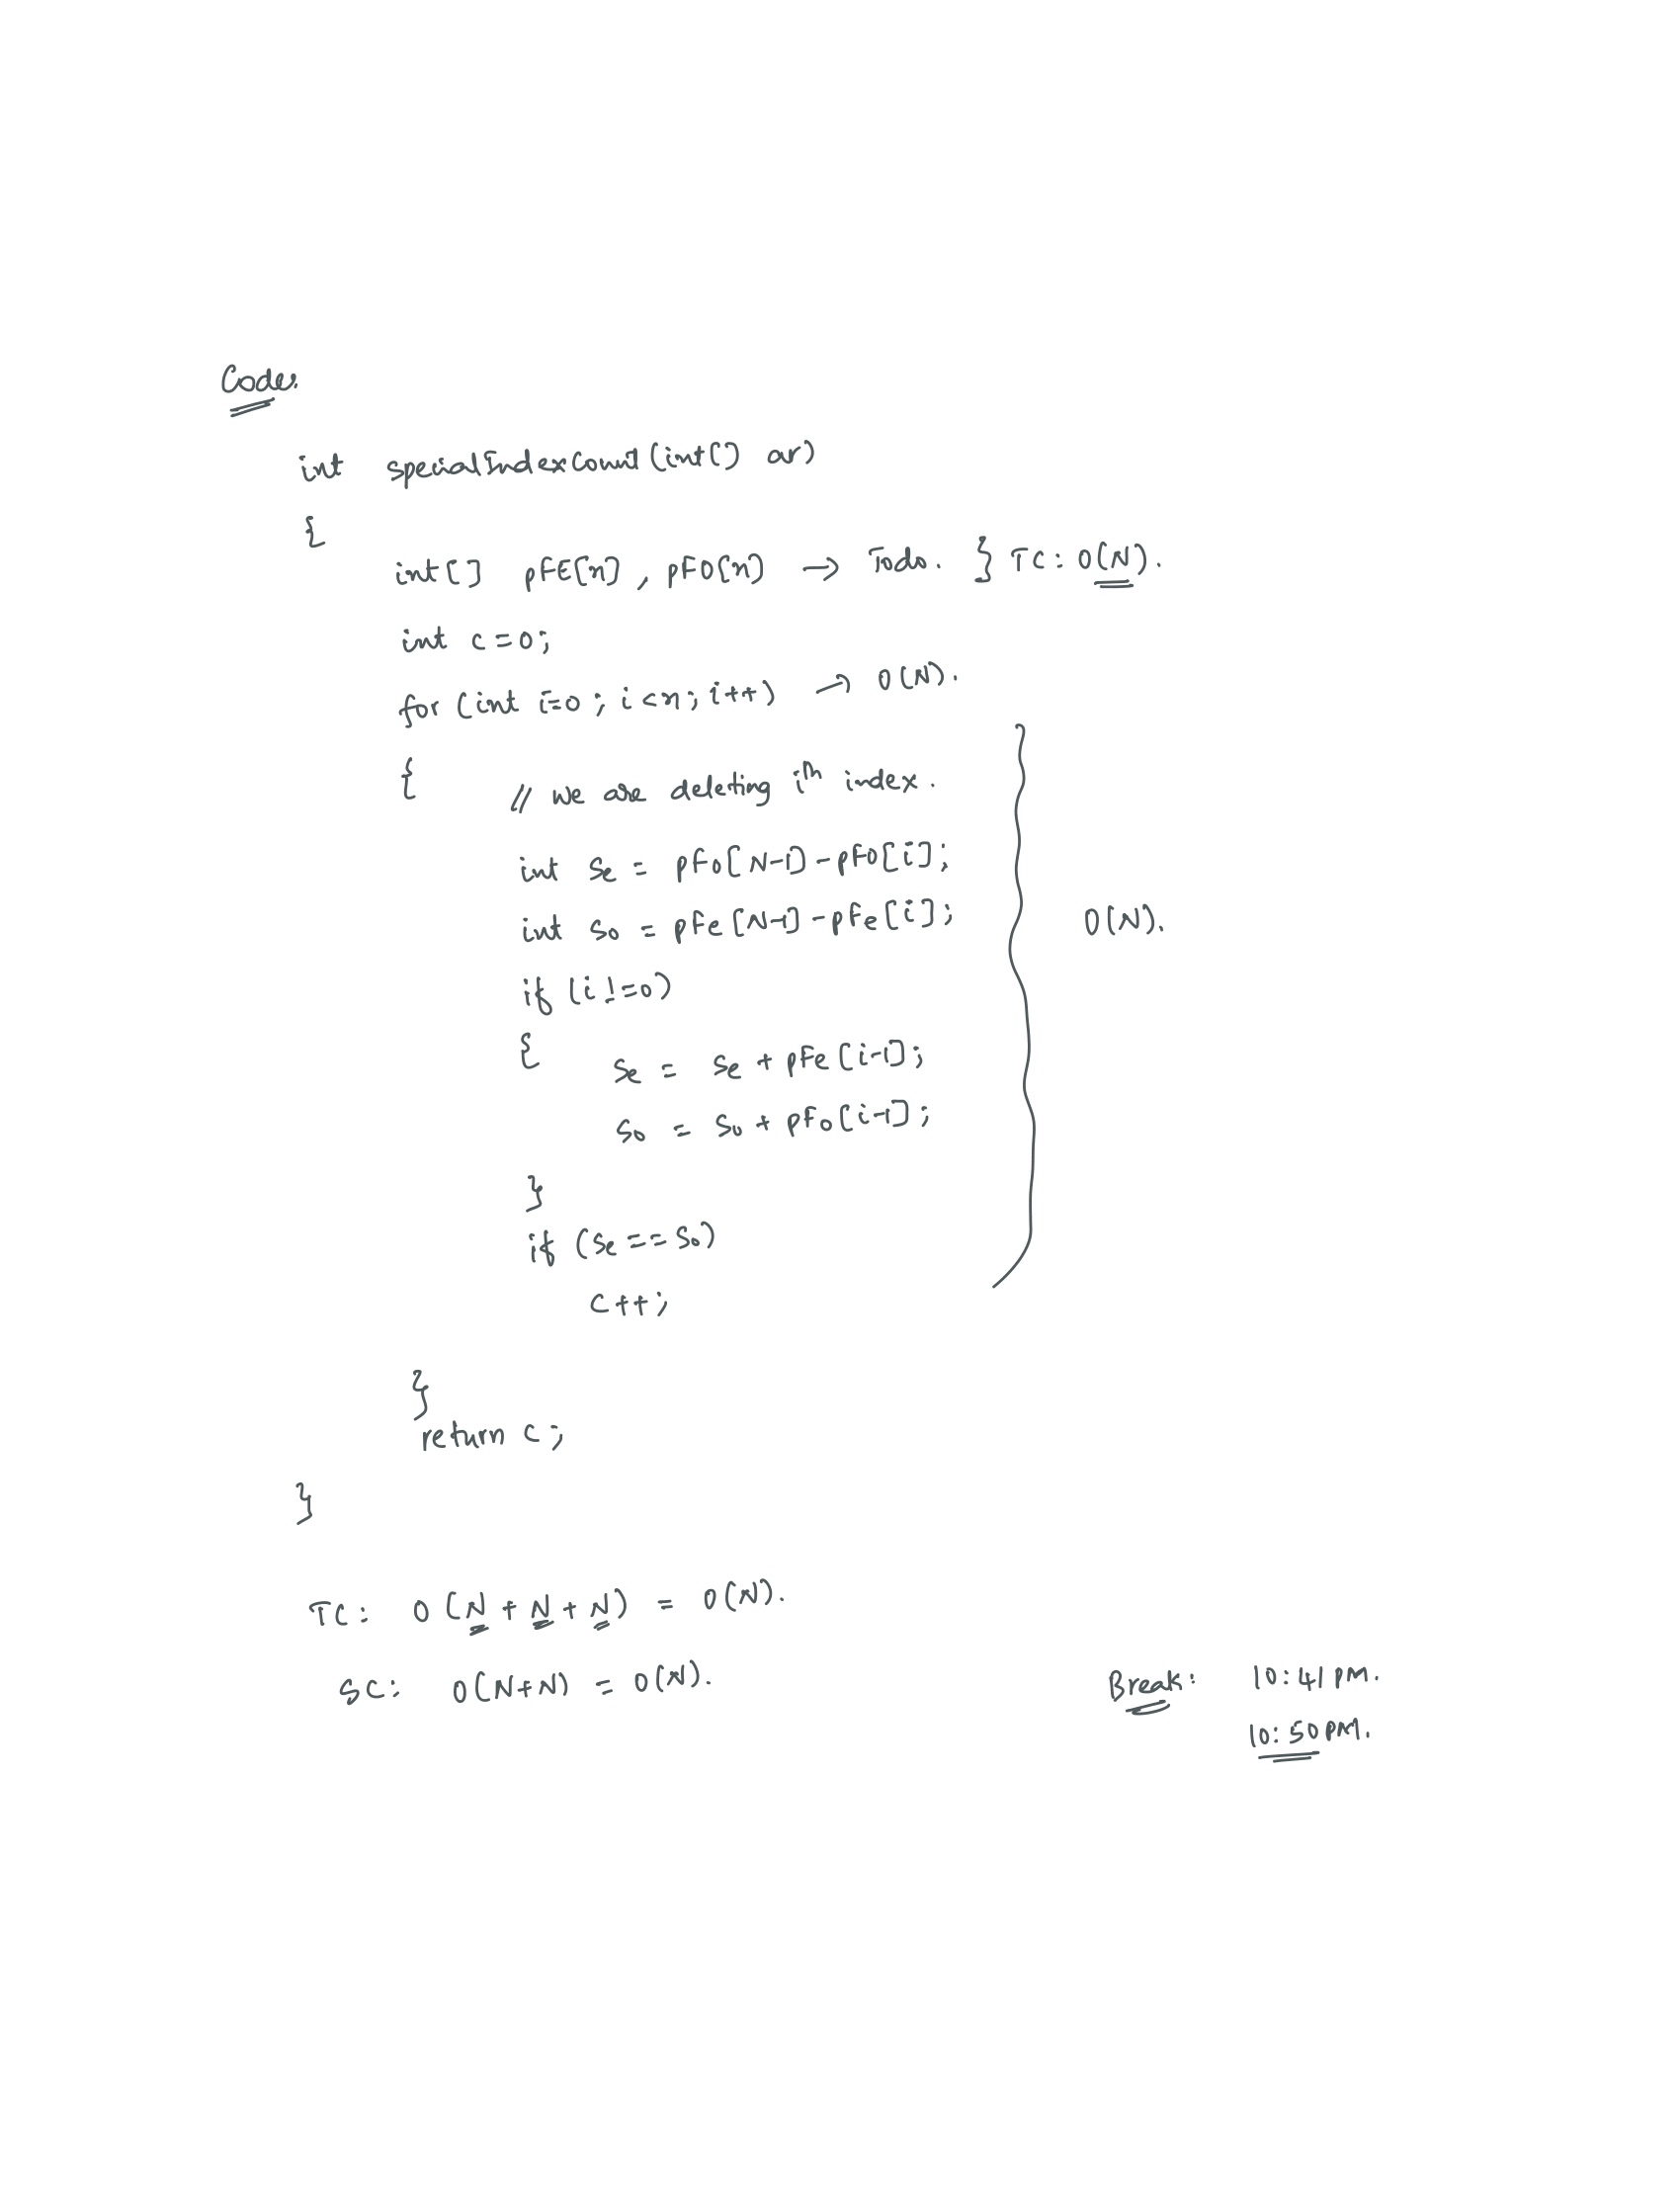 Code.
int specialIndexCount(int[] ar)
{
int[] pfE[n], pfO[n] → Todo. } TC: O(N).
int c=0;
for (int i=0; i<n; i++) → O(N).
{ // we are deleting ith index.
int Se = pfo[N-1] - pfO[i];
int So = pfe[N-1] - pfe[i]; O(N).
if (i!=0)
{ Se = Se + pfe[i-1];
So = So + pfo[i-1];
}
if (Se == So)
c++;
}
return c;
}
TC: O(N+N+N) = O(N).
SC: O(N+N) = O(N).
Break: 10:41 PM.
10:50 PM.